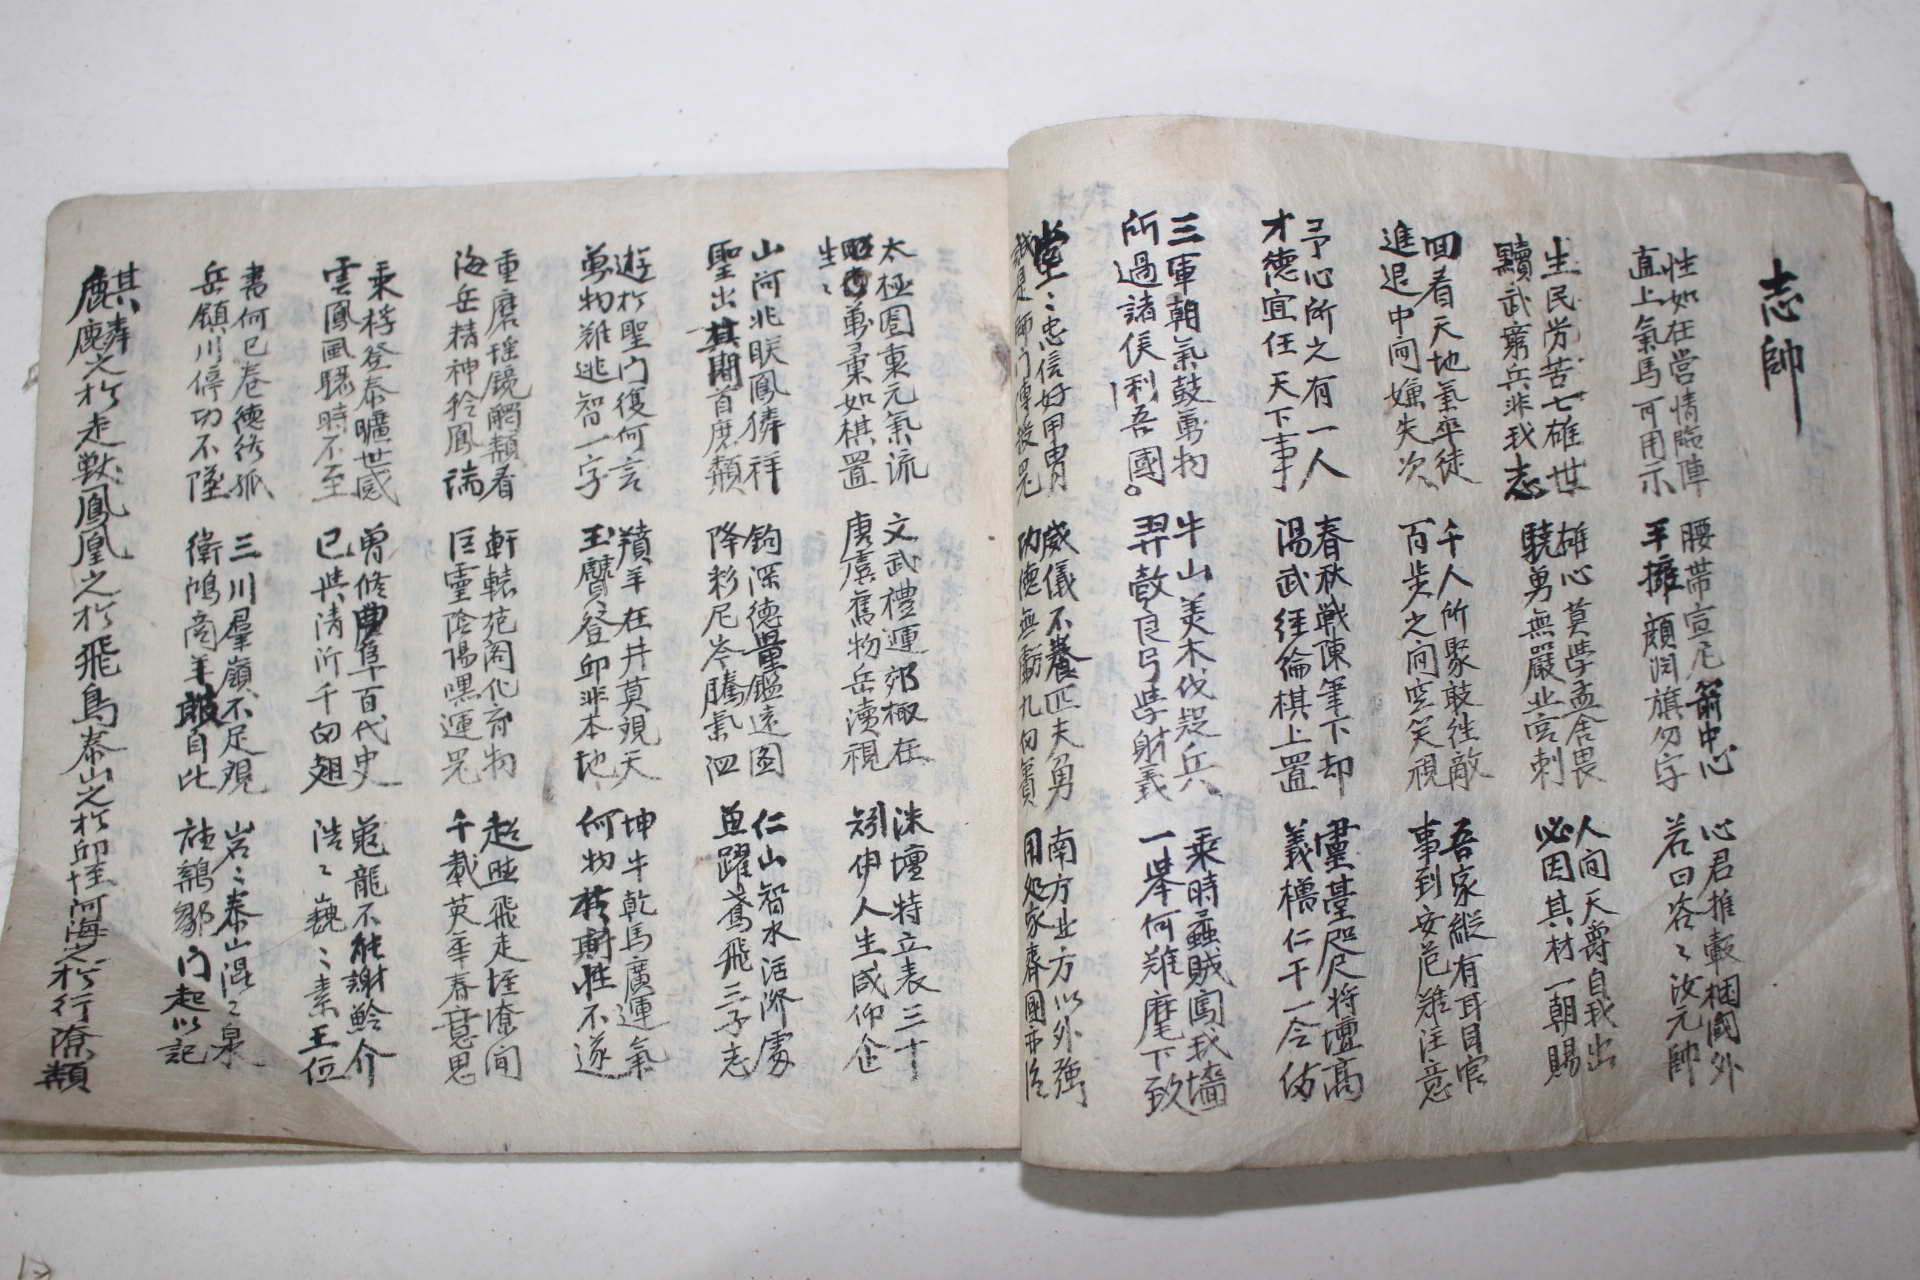 志帥
性如在當情臨陣
直上氣馬可用示
腰帶宣尼箭中心
手擁顔淵旗勿字
心君推轂梱閫外
若曰咨〻汝元帥
生民劳苦七雄世
黷武窮兵非我志
雄心莫學孟舍畏
驍勇無嚴北宮刺
人间天爵自我出
必因其材一朝賜
回看天地氣卒徒
進退中间嫌失次
千人所聚敢往敵
百步之间空笑視
吾家縱有耳目官
事到安危難注意
予心所之有一人
才德宜任天下事
春秋戰陳筆下却
湯武經綸棋上置
靈臺咫尺將壇髙
義櫓仁干一令
三軍朝氣鼓萬物
所過諸侯利吾國
牛山美木伐兵
羿彀良弓學射義
乘時賊闖我墻
一擧何難麾下致
堂〻忠信好甲胄
我是師门傳授
威儀不養匹夫勇
功德無虧九仞簣
南方北方以外强
用処家齊國亦治
太極圈東元氣流
生〻萬彙如棋置
文武禮運郊椒在
唐虞舊物岳瀆視
洙壇特立表三十
矧伊人生咸仰企
山河北眹鳳獜祥
聖出其间首庶類
鉤深德量鑑遠圖
降彩尼岑騰氣泗
仁山智水活潑處
魚躍鳶飛三子志
遊於聖门復何言
萬物難逃智一字
羵羊在井莫観天
玉麐登邱非本地
坤牛乾馬廣運氣
何物於斯性不遂
重磨瑤鏡觸類看
海岳精神於鳳瑞
軒轅苑阁化育物
巨靈陰陽嘿運
超映飛走垤潦间
千載英華春意思
乘桴登泰曠世感
雲鳳風驥時不至
曾修曲阜百代史
已與清沂千仞翅
龜龍不能謝鯰介
浩〻巍〻素王位
書何已卷德終孤
岳鎮川停功不墜
三川羣嶺不足觀
衛鴻商羊敢自比
岩〻泰山混〻泉
鄒门起以記
麒麟之於走獸鳳凰之於飛鳥泰山之於邱垤河海之於行潦類